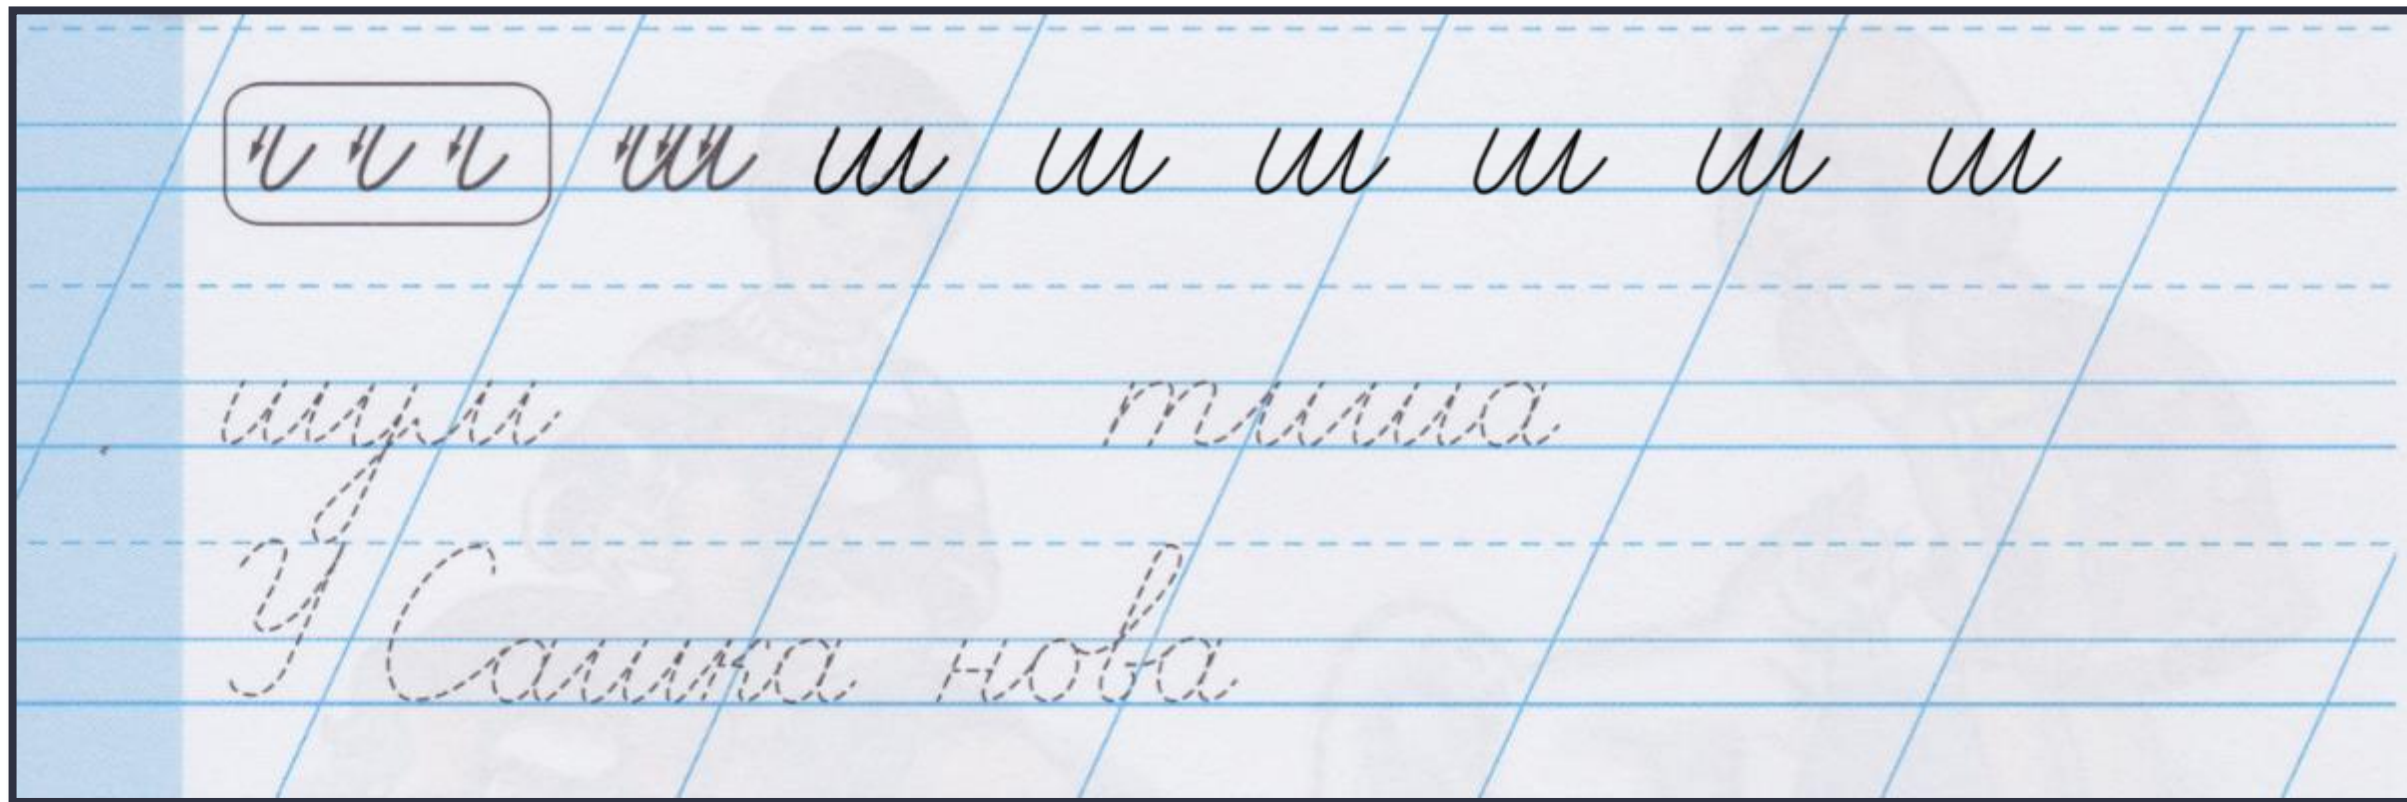 ш ш ш ш ш ш ш
шум тиша
У Сашка нова